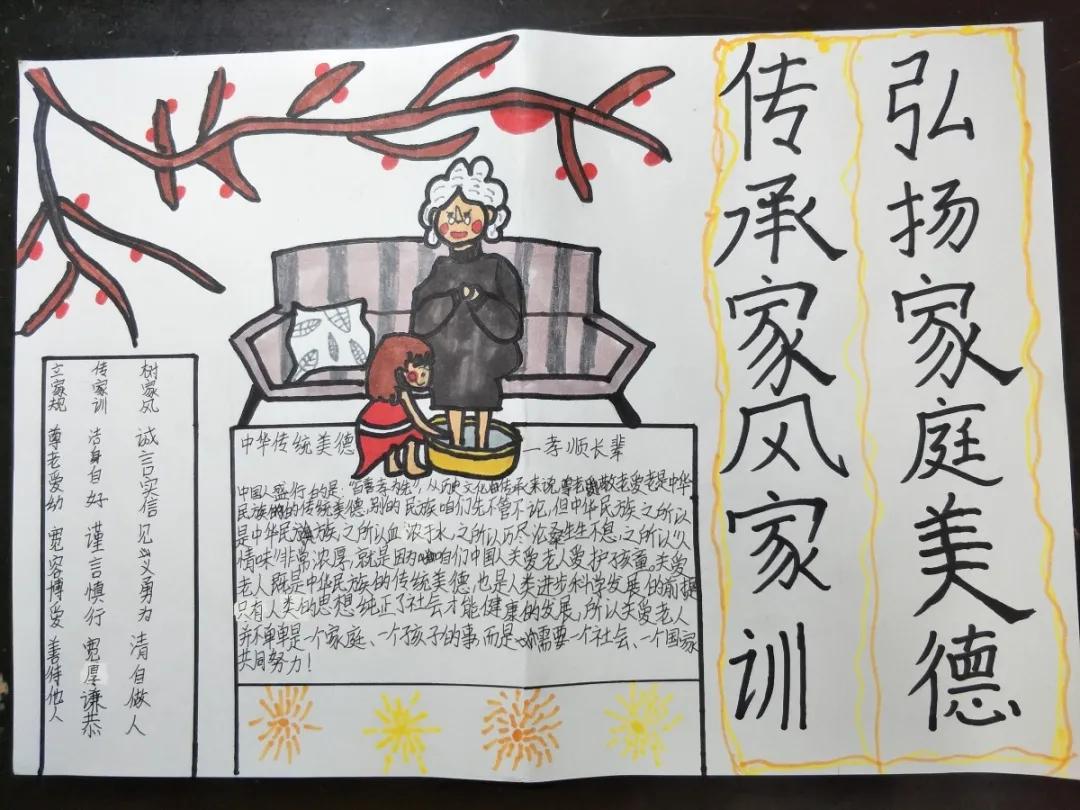 弘扬家庭美德
传承家风家训
中华传统美德
—孝顺长辈
中国人盛行的是:“百善孝为先”,从历史文化的传承来说,尊老敬老爱老是中华
民族的传统美德,别的民族咱们先不管不论,但中华民族之所以
是中华民族,之所以血浓于水,之所以历尽沧桑生生不息,之所以“人
情味”非常浓厚,就是因为咱们中国人关爱老人爱护孩童。关爱
老人既是中华民族的传统美德,也是人类进步科学发展的前提
只有人类的思想纯正了社会才能健康的发展,所以关爱老人
并不单单是一个家庭、一个孩子的事,而是需要一个社会、一个国家
共同努力!
树家风 诚言实信 见义勇为 清白做人
传家训 洁身自好 谨言慎行 宽厚谦恭
立家规 尊老爱幼 宽容博爱 善待他人